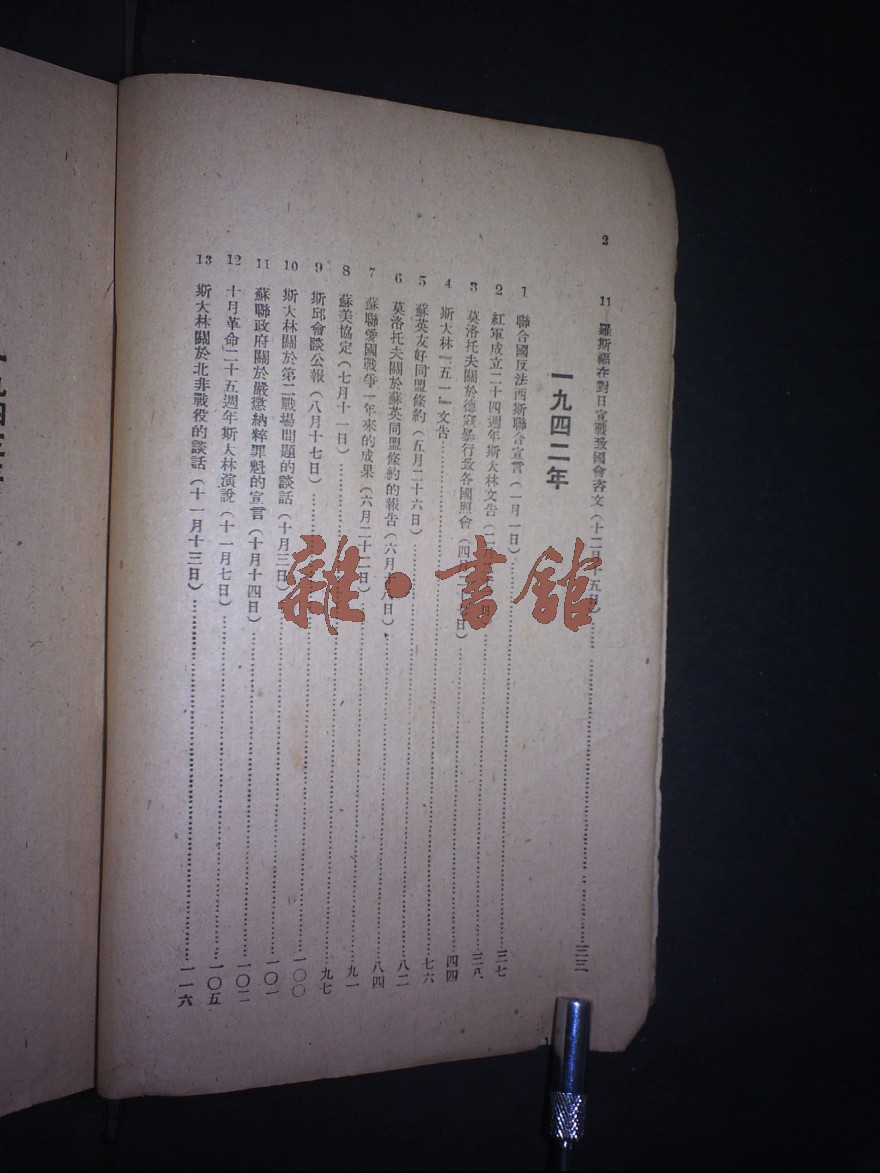 2
11 羅斯福在對日宣戰致國會咨文(十二月十五日)……三三
一九四二年
1 聯合國反法西斯聯合宣言(一月一日)……三七
2 紅軍成立二十四週年斯大林文告(二月
3 莫洛托夫關於德寇暴行致各國照會(四月 日)……三八
4 斯大林「五一」文告……四四
5 蘇英友好同盟條約(五月二十六日)……七六
6 莫洛托夫關於蘇英同盟條約的報告(六月十八日)……八二
7 蘇聯愛國戰爭一年來的成果(六月二十二日)……八四
8 蘇美協定(七月十一日)……九一
9 斯邱會談公報(八月十七日)……九七
10 斯大林關於第二戰場問題的談話(十月三日)……一〇〇
11 蘇聯政府關於嚴懲納粹罪魁的宣言(十月十四日)……一〇一
12 十月革命二十五週年斯大林演說(十一月七日)……一〇二
13 斯大林關於北非戰役的談話(十一月十三日)……一一六
一〇五
雜·書館